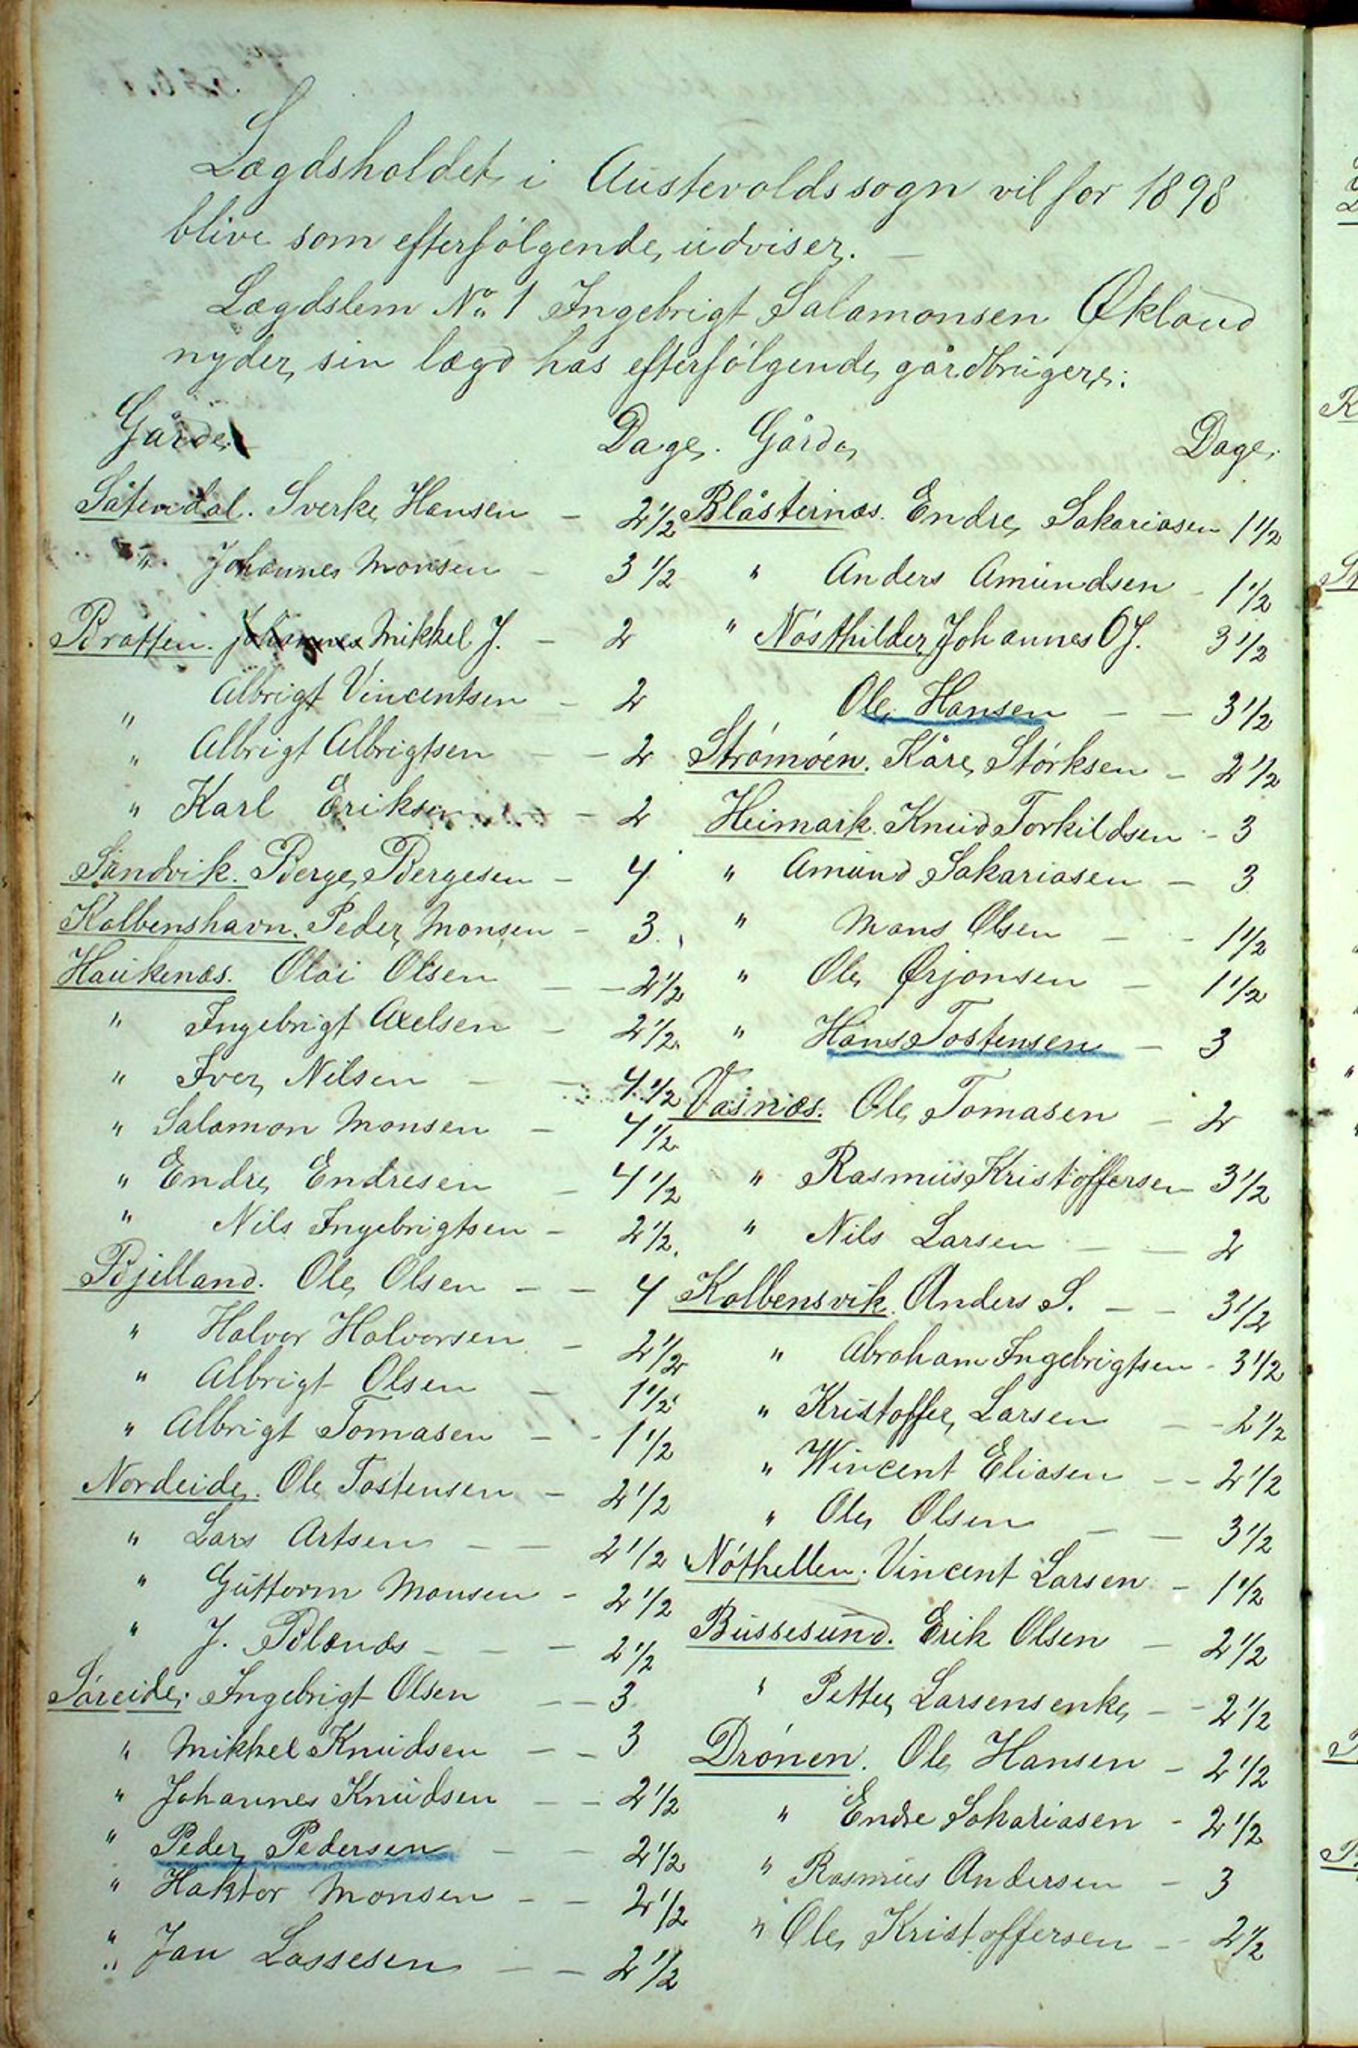 Lægdsholdet i Austevolds sogn vil for 1898
blive som efterfølgende udviser. —
Lægdslem No 1 Ingebrigt Salamonsen Økland
nyder sin lægd hos efterfølgende gårdbrugere:
Gårde Dage.
Såtendal. Sverke Hansen - 2 1/2
" Johannes Monsen - 3 1/2
Bratten. Johannes Mikkel J. - 2
" Albrigt Vincentsen - 2
" Albrigt Albrigtsen - - 2
" Karl Eriksen - 2
Sandvik. Berge Bergesen - 4
Kolbenshavn. Peder Monsen - 3.
Haukenæs. Olai Olsen - - 2 1/2
" Ingebrigt Axelsen - 2 1/2
" Iver Nilsen - - 4 1/2
" Salamon Monsen - 4 1/2
" Endre Endresen - 4 1/2
" Nils Ingebrigtsen - 2 1/2
Bjelland. Ole Olsen - - 4
" Halvor Halvorsen - 2 1/2
" Albrigt Olsen - 1 1/2
" Albrigt Tomasen - - 1 1/2
Nordeide. Ole Tostensen - 2 1/2
" Lars Artsen - - 2 1/2
" Guttorm Monsen - 2 1/2
" J. Blænæs - - - 2 1/2
Søreide. Ingebrigt Olsen - - 3
" Mikkel Knudsen - - 3
" Johannes Knudsen - - 2 1/2
" Peder Pedersen - - 2 1/2
" Haktor Monsen - - 2 1/2
" Jan Lassesen - - 2 1/2
Gårde Dage.
Blåsternæs. Endre Sakariasen 1 1/2
" Anders Amundsen - 1 1/2
" Nósthilder Johannes O J. 3 1/2
Ole Hansen - - 3 1/2
Strømóen. Kåre Størksen - 2 1/2
Heimark. Knud Torkildsen - 3
" Amund Sakariasen - 3
" Mons Olsen - - 1 1/2
" Ole Ørjansen - 1 1/2
" Hans Tostensen - 3
Vasnæs. Ole Tomasen - 2
" Rasmus Kristoffersen 3 1/2
" Nils Larsen - - 2
Kolbensvik. Anders S. - - 3 1/2
" Abraham Ingebrigtsen - 3 1/2
" Kristoffer Larsen - - 2 1/2
" Wincent Eliasen - - 2 1/2
" Ole Olsen - - 3 1/2
Nóthellen. Vincent Larsen - 1 1/2
Bussesund. Erik Olsen - 2 1/2
" Petter Larsensenke - - 2 1/2
Drónen. Ole Hansen - 2 1/2
" Endre Sakariasen - 2 1/2
" Rasmus Andersen - 3
" Ole Kristoffersen - 2 1/2